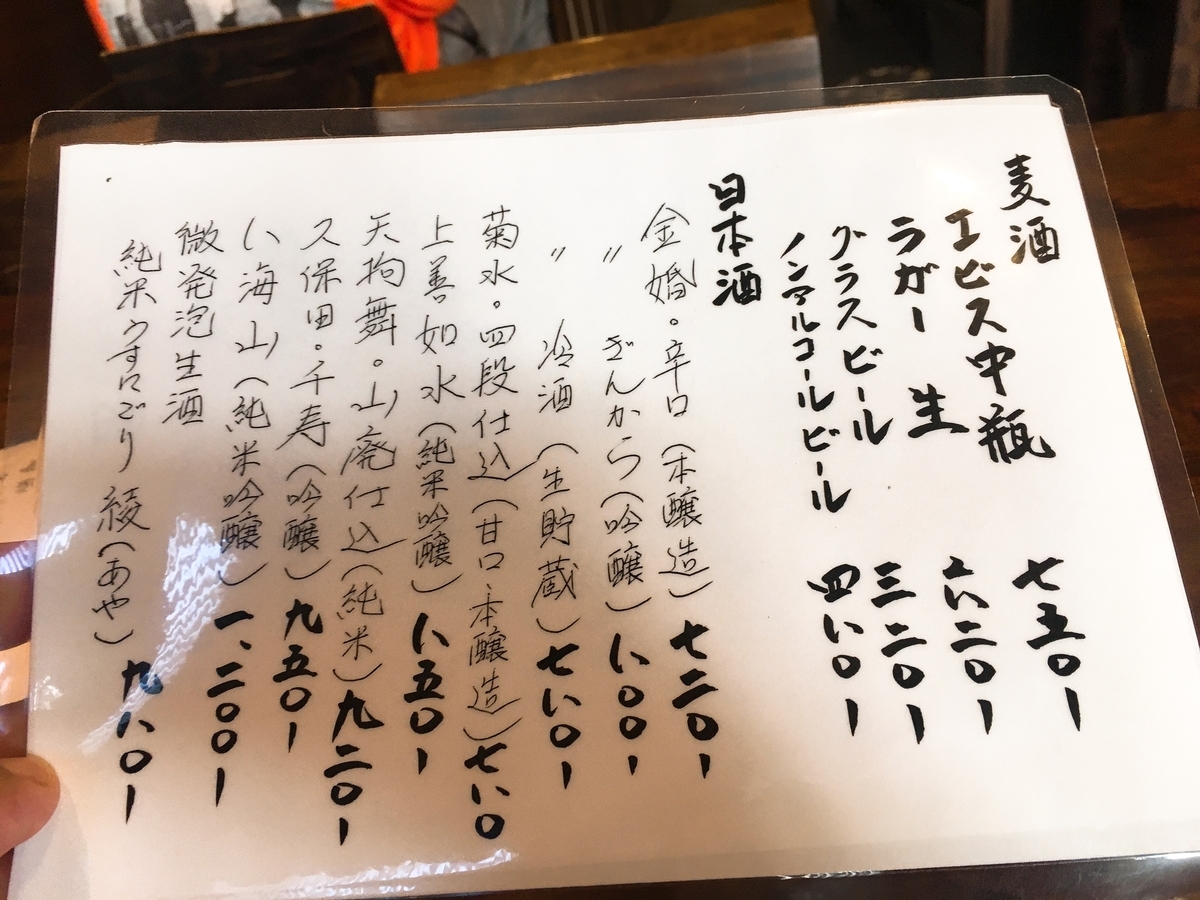 麦酒
エビス中瓶 七五〇ー
ラガー 生 六二〇ー
グラスビール 三二〇ー
ノンアルコールビール 四八〇ー
日本酒
金婚・辛口(本醸造) 七二〇ー
〃 ぎんから(吟醸) 八〇〇ー
〃 冷酒(生貯蔵) 七八〇ー
菊水・四段仕込(甘口・本醸造) 七八〇
上善如水(純米吟醸) 八五〇ー
天狗舞・山廃仕込(純米) 九二〇ー
久保田・千寿(吟醸) 九五〇ー
八海山(純米吟醸) 一、二〇〇ー
微発泡生酒
純米うすにごり 綾(あや) 九八〇ー